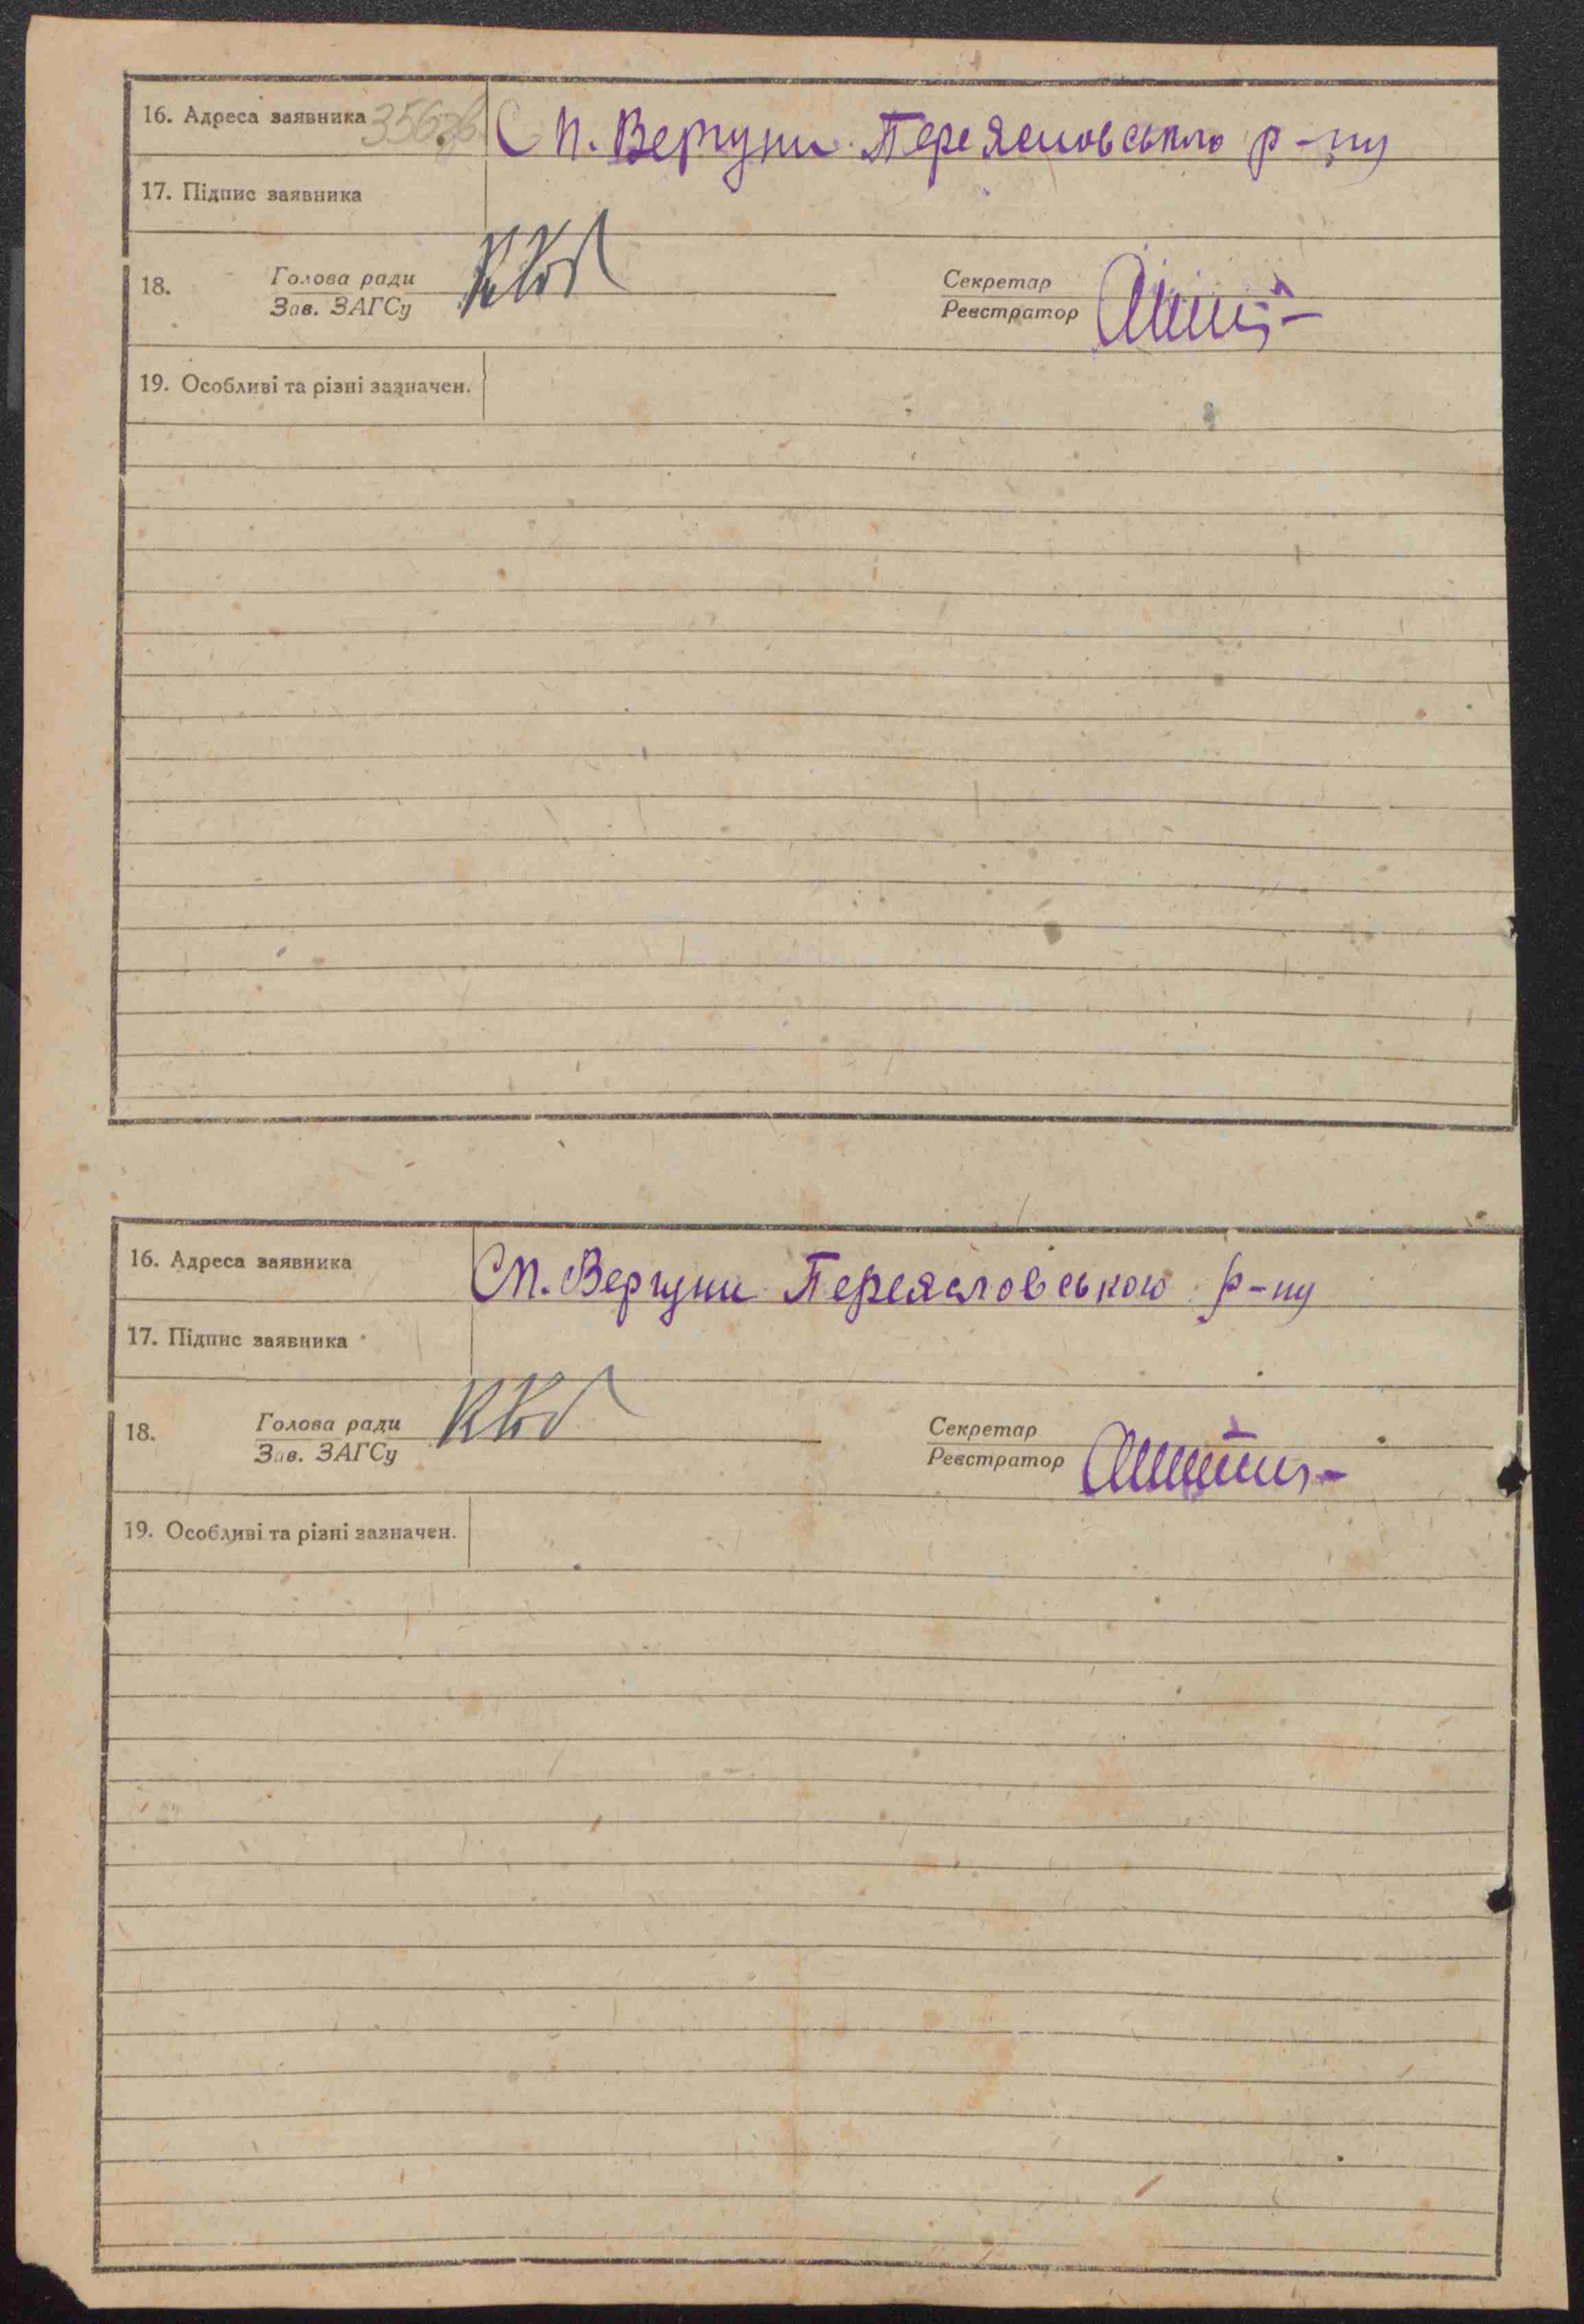 16. Адреса заявника С п. Вергуни Переясловського р-ну
17. Підпис заявника
18. Голова ради Секретар
Зав. ЗАГСу Реєстратор
19. Особливі та різні зазначен.
16. Адреса заявника Сп. Вергуни Переясловського р-ну
17. Підпис заявника
18. Голова ради Секретар
Зав. ЗАГСу Реєстратор
19. Особливі та різні зазначен.